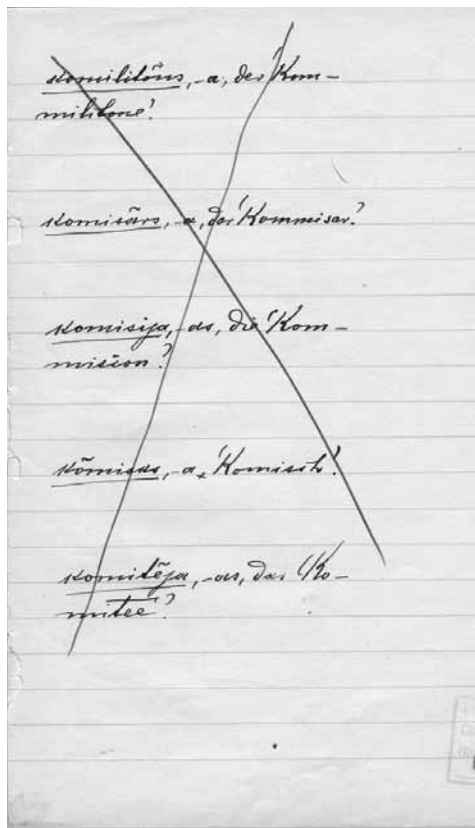 komilitōns, -a, der 'Kom-
militone'.
komisārs, -a, der 'Kommisar'.
komisija, -as, die 'Kom-
mision'.
kōmisks, -a, 'Komisch'.
komitēja, -as, das 'Ko-
mitee'.